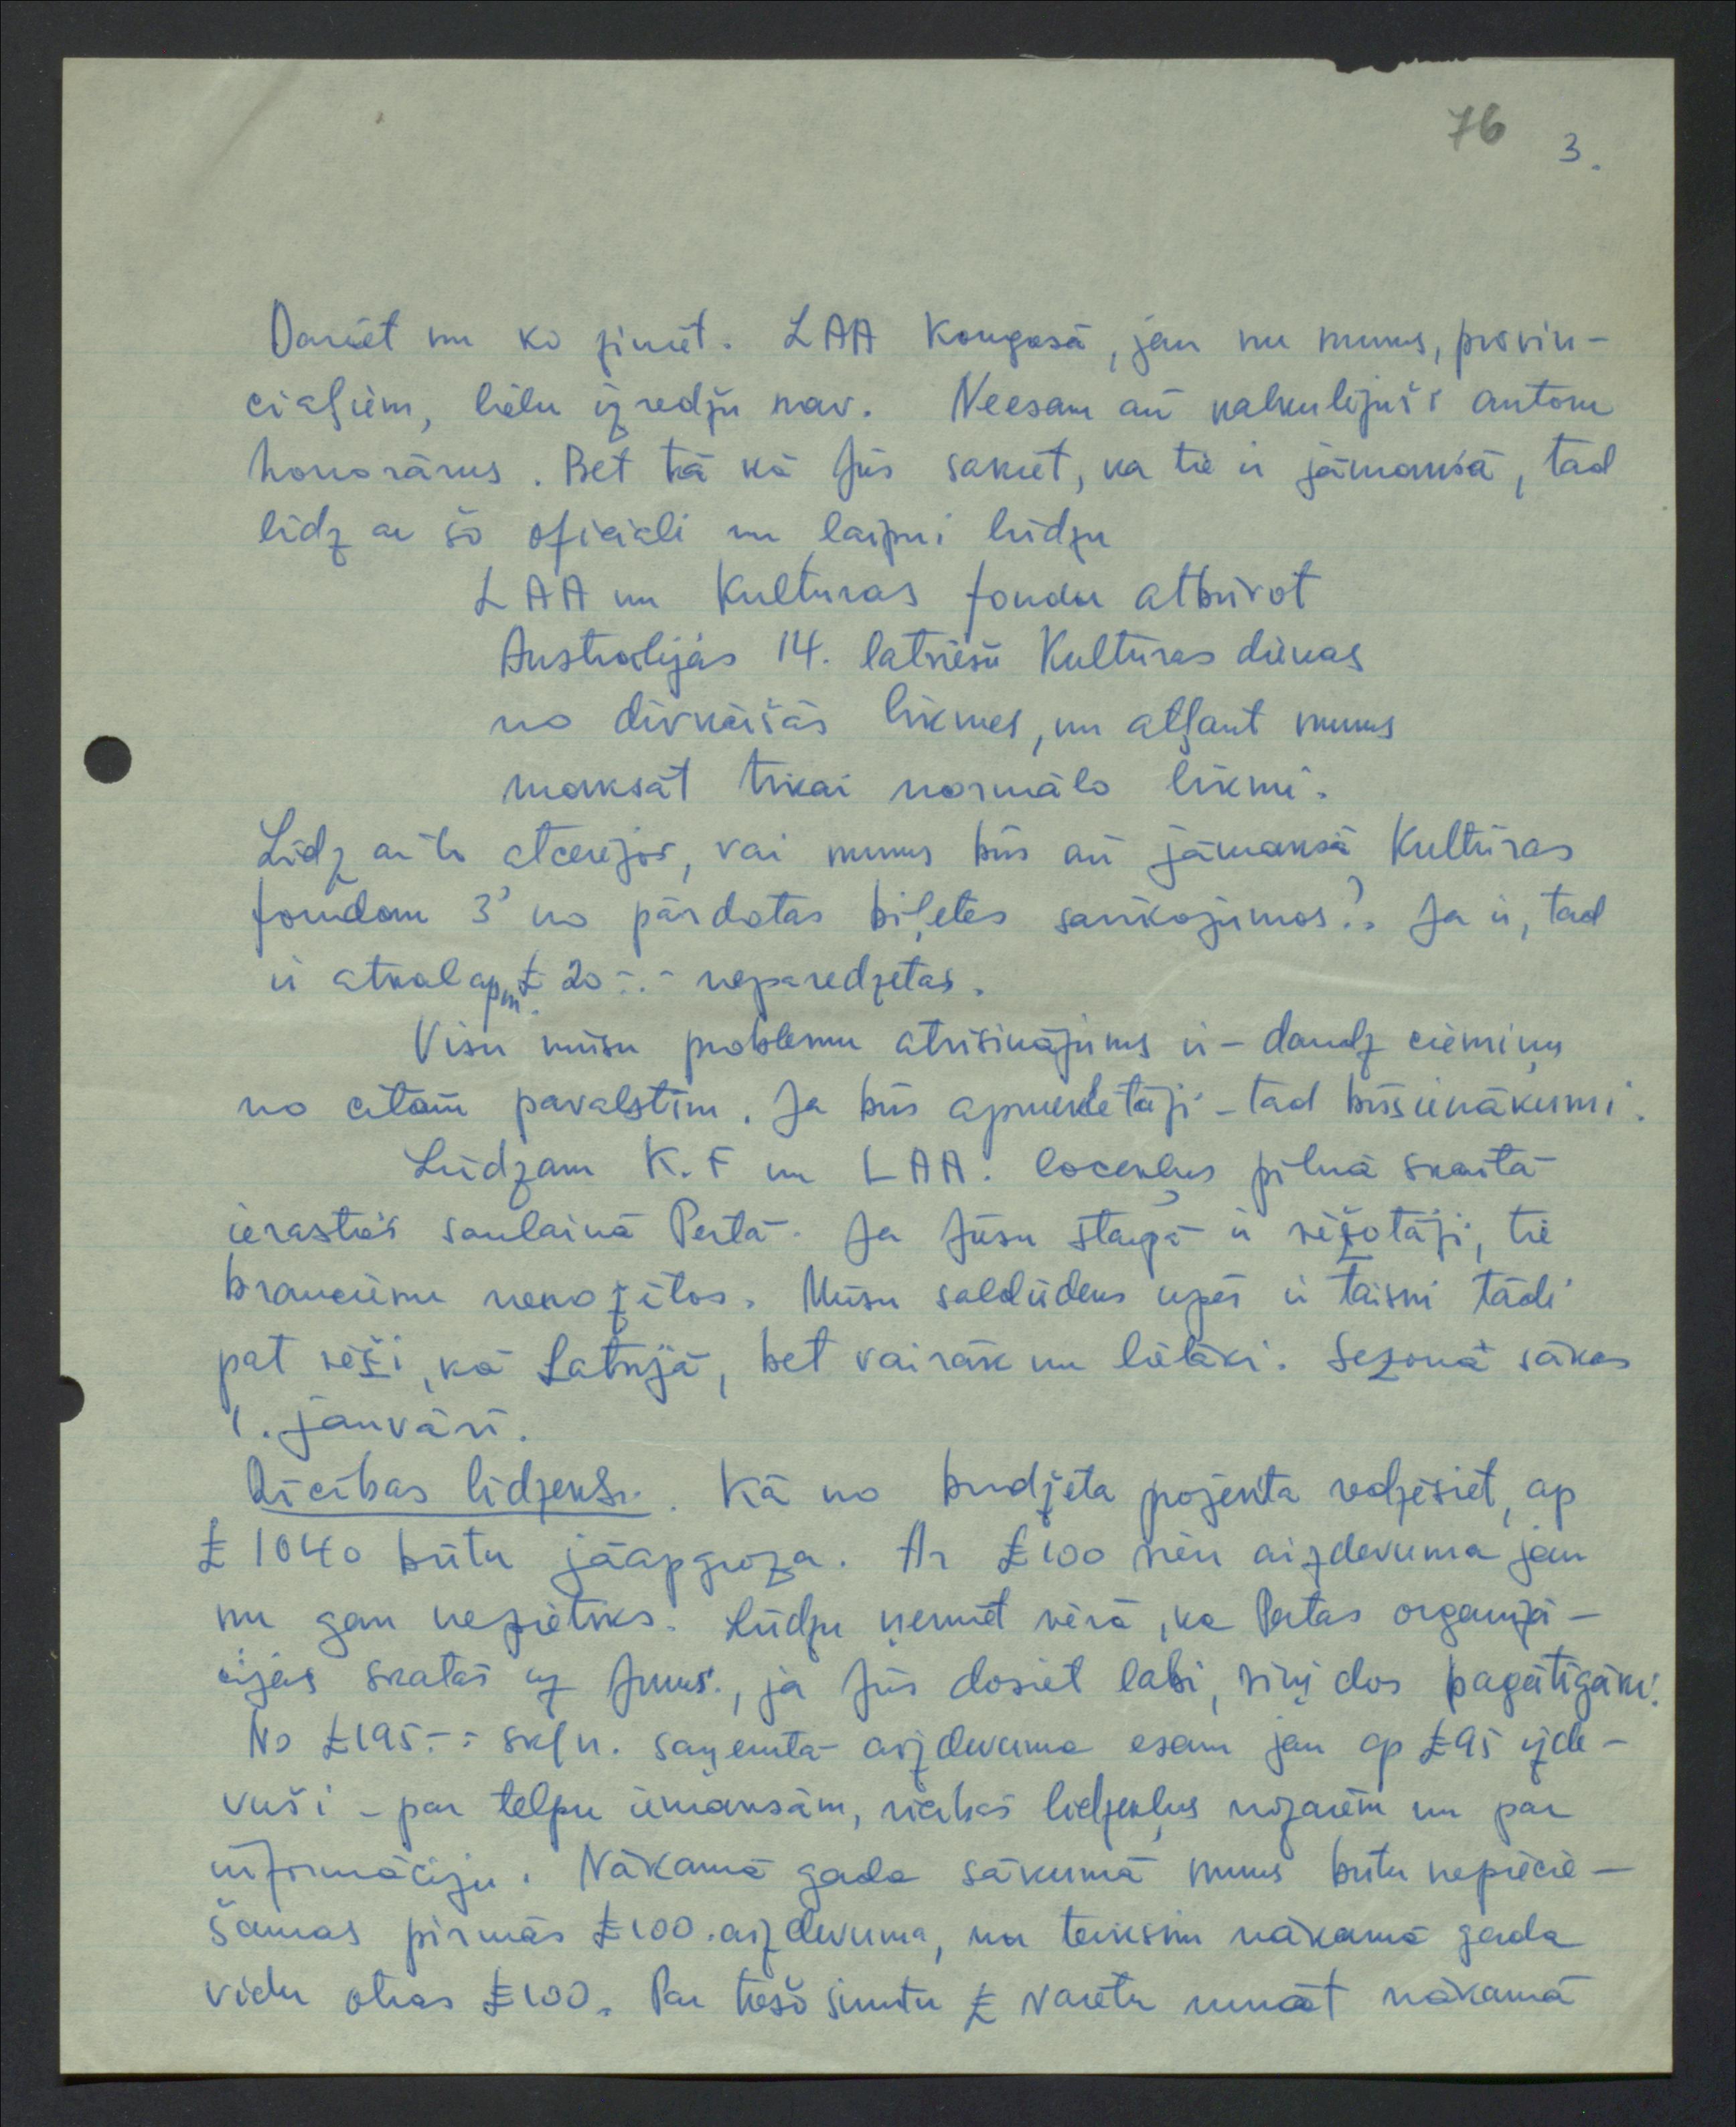 76
3.
Dariet nu ko ziniet. LAA Kongresā, jau nu mums, provin-
ciaļiem, lielu izredžu nav. Neesam arī kalkulējuši autoru
honorārus. Bet tā kā Jūs sakiet, ka tie ir jāmaksā, tad
līdz ar šo oficiāli un laipni lūdzu
LAA un Kultūras fondu atbrīvot
Austrālijas 14. latviešu Kultūras dienas
no divkāršās likmes, un atļaut mums
maksāt tikai normālo likmi.
Līdz ar to atcerējos, vai mums būs arī jāmaksā Kultūras
fondam 3' no pārdotās biļetes sarīkojumos? Ja ir, tad
ir atkal apm. £ 20-.- neparedzētas.
Visu mūsu problemu atrisinājums ir - daudz ciemiņu
no citām pavalstīm. Ja būs apmeklētāji - tad būs ienākumi.
Lūdzam K.F un LAA. locekļus pilnā skaitā
ierasties saulainā Pertā. Ja Jūsu starpā ir vēžotāji, tie
braucienu nenožēlos. Mūsu saldūdens upēs ir taisni tādi
pat vēži, kā Latvijā, bet vairāk un lielāki. Sezonā sākas
1. janvārī.
Rīcības līdzekļi. Kā no budžeta projekta redzēsiet, ap
£ 1040 būtu jāapgroza. Ar £100 vien aizdevuma jau
nu gan nepietiks. Lūdzu ņemiet vērā, ka Pertas organizā-
cijas skatās uz Jums., ja Jūs dosiet labi, viņi dos bagātīgāki!
No £195.-: skļu. saņemtā aizdevuma esam jau ap £95 izde-
vuši - par telpu iemaksām, rīcības līdzekļus nozarēm un par
informāciju. Nākamā gada sākumā mums būtu nepiecie-
šamas pirmās £100. aizdevuma, un teiksim nākamā gada
vidū otras £100. Par trešo simtu £ varētu runāt nākamā